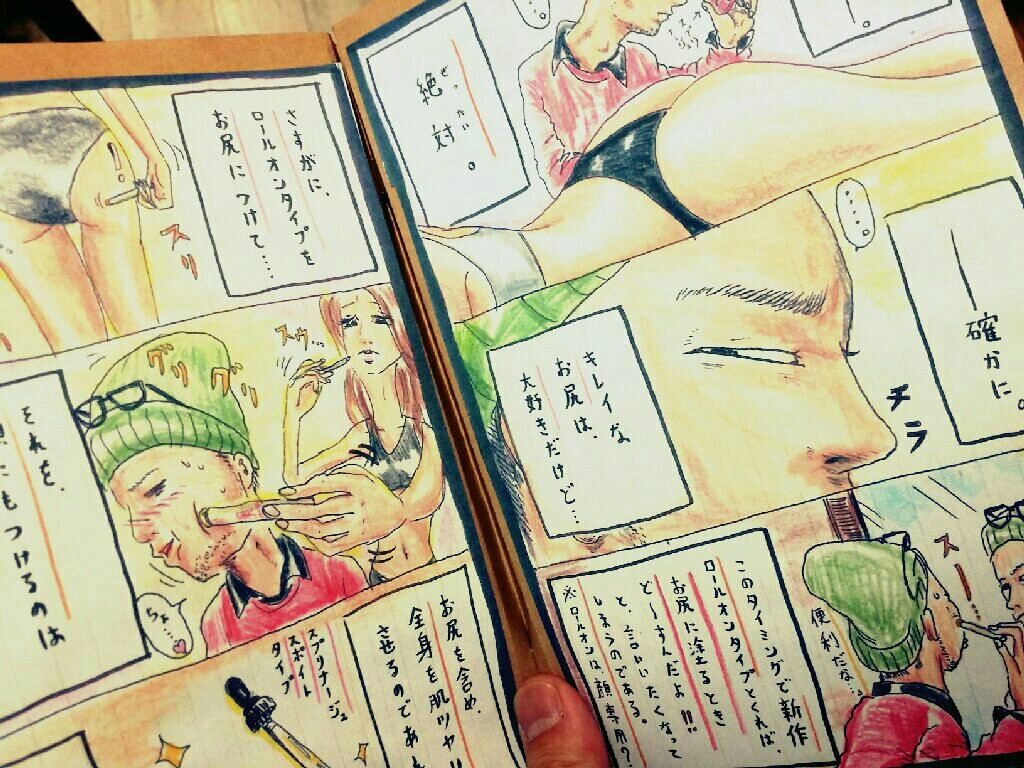 ぜったい
絶対。
……
―確かに。
チラ
キレイな
お尻は、
大好きだけど…
スー
便利だな…
このタイミングで新作
ロールオンタイプとくれば、
お尻に塗るとき
どーすんだよ!!
と、言いたくなって
しまうのである。
※ロールオンは顔専用?
さすがに、
ロールオンタイプを
お尻につけて……
スリ
スゥ…
グリ
グリ
それを、
にもつけるのは
ちょ…♡
お尻を含め、
全身を肌ツヤ!!
させるのであ
スプリナージュ
スポイト
タイプ